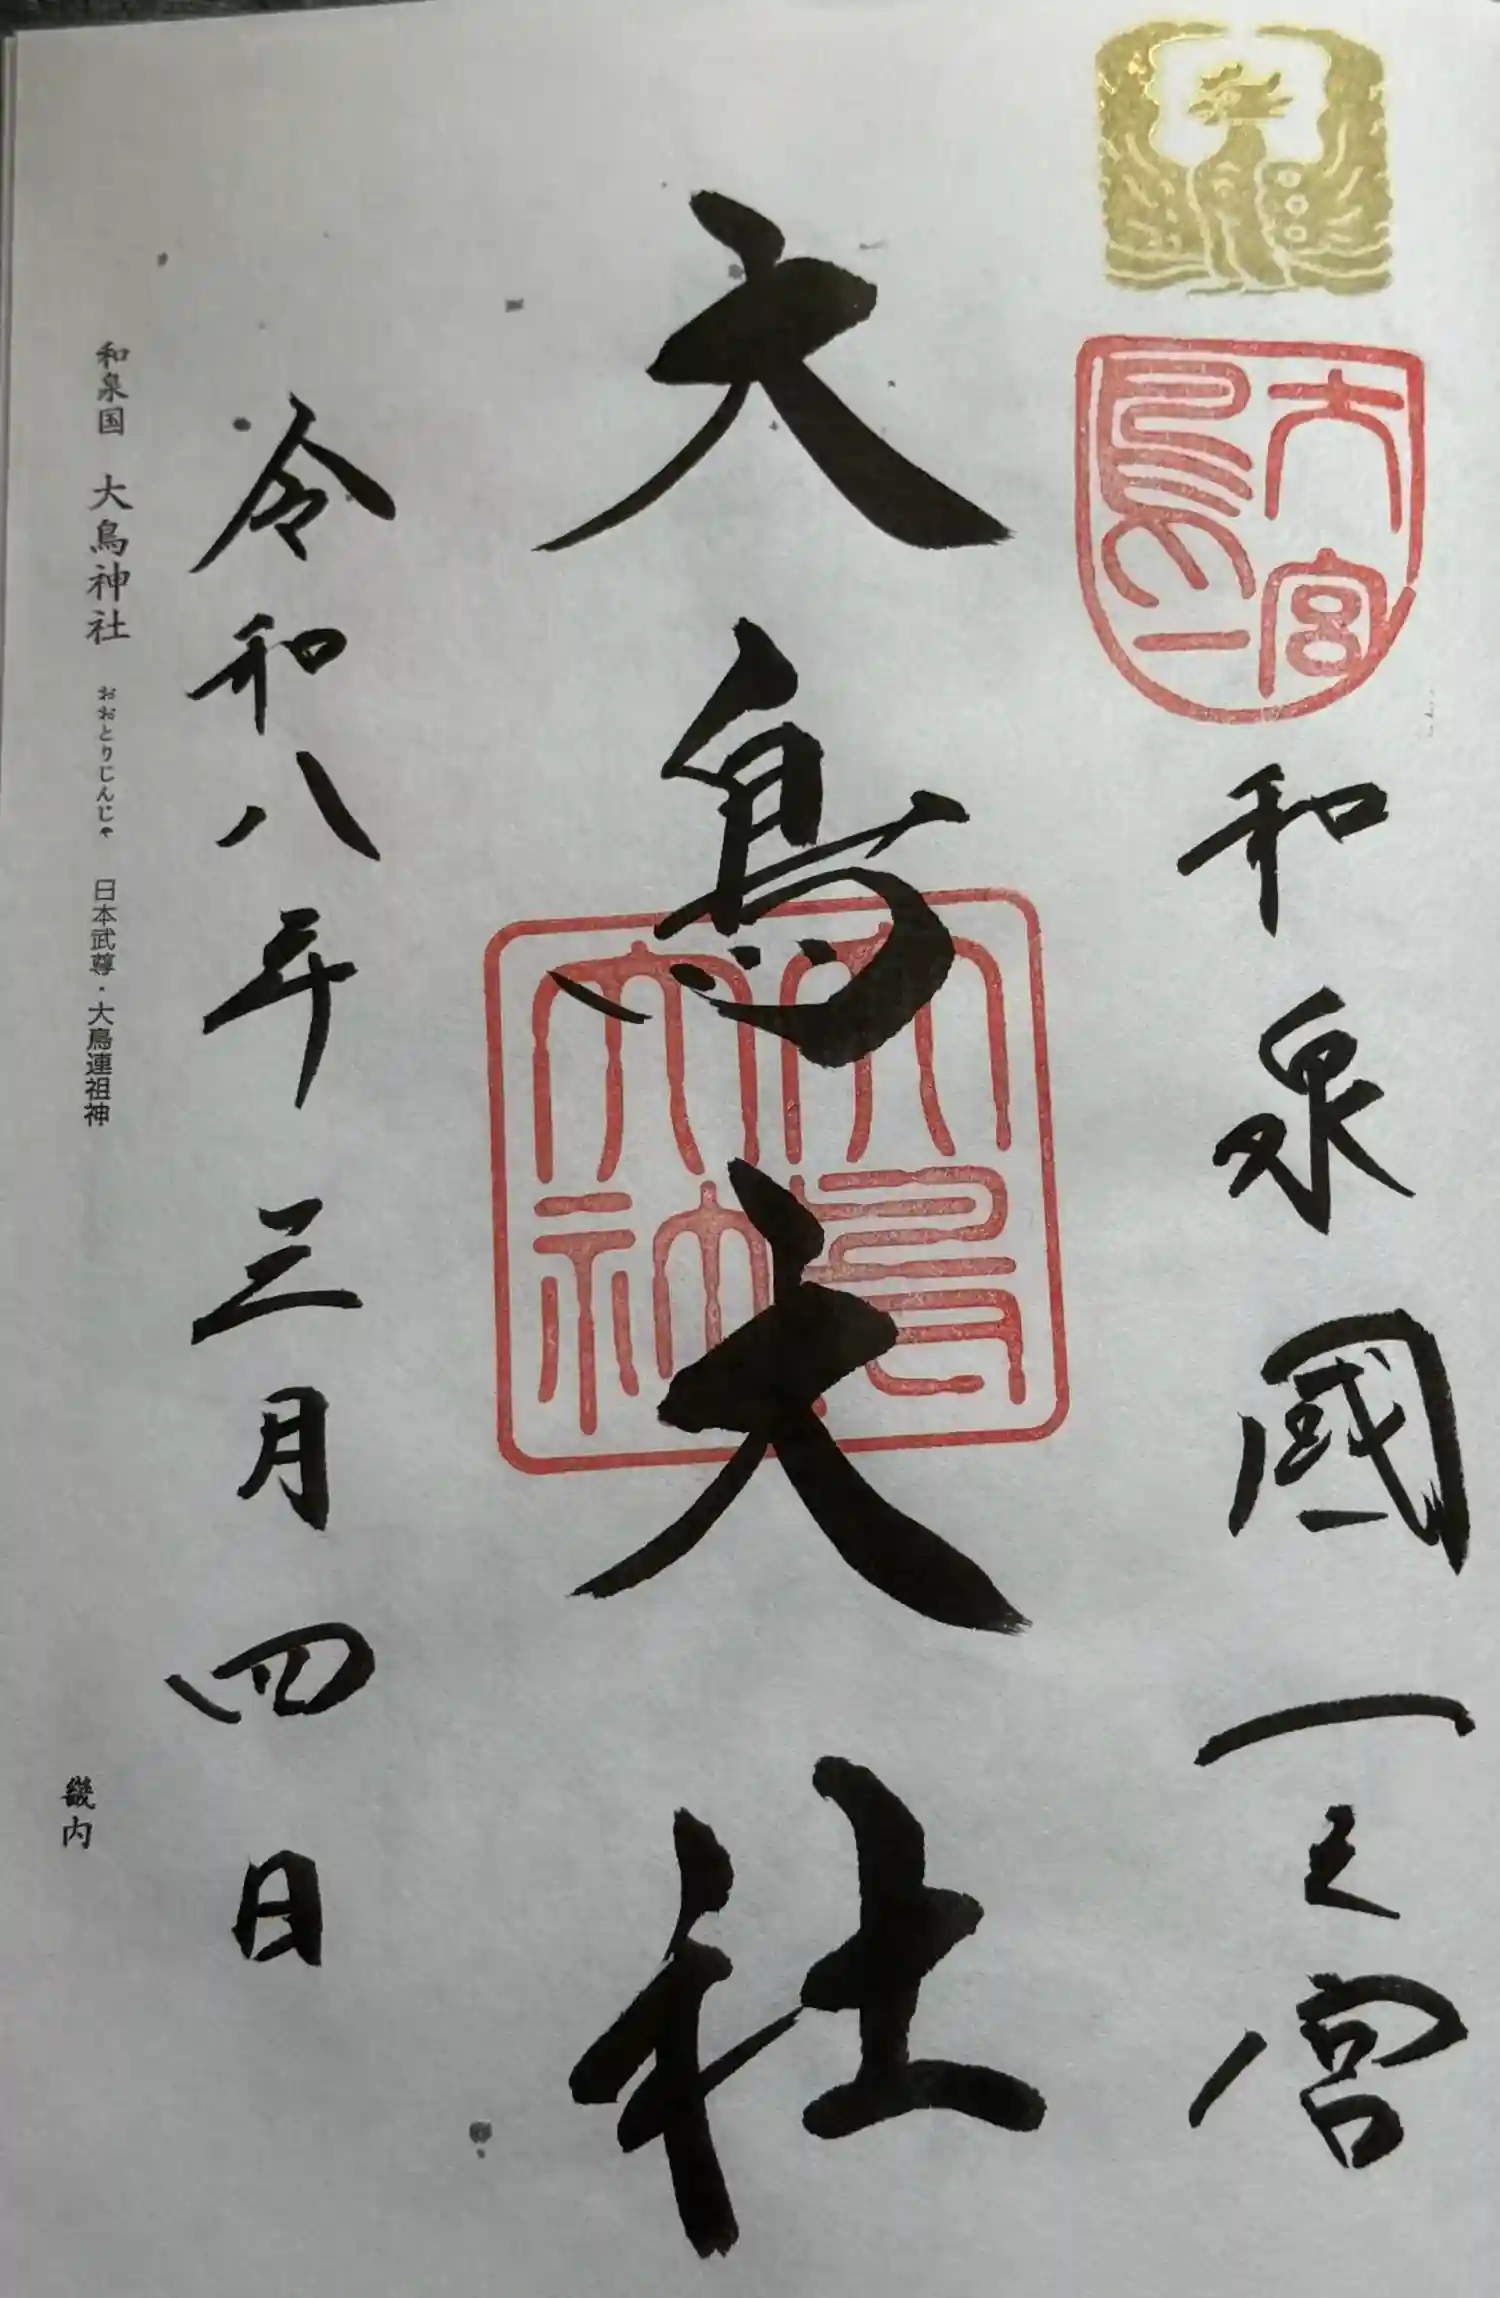 大鳥一宮
和泉國一之宮
大鳥大社
大鳥大神
令和八年三月四日
和泉国 大鳥神社 おおとりじんじゃ 日本武尊・大鳥連祖神
畿内